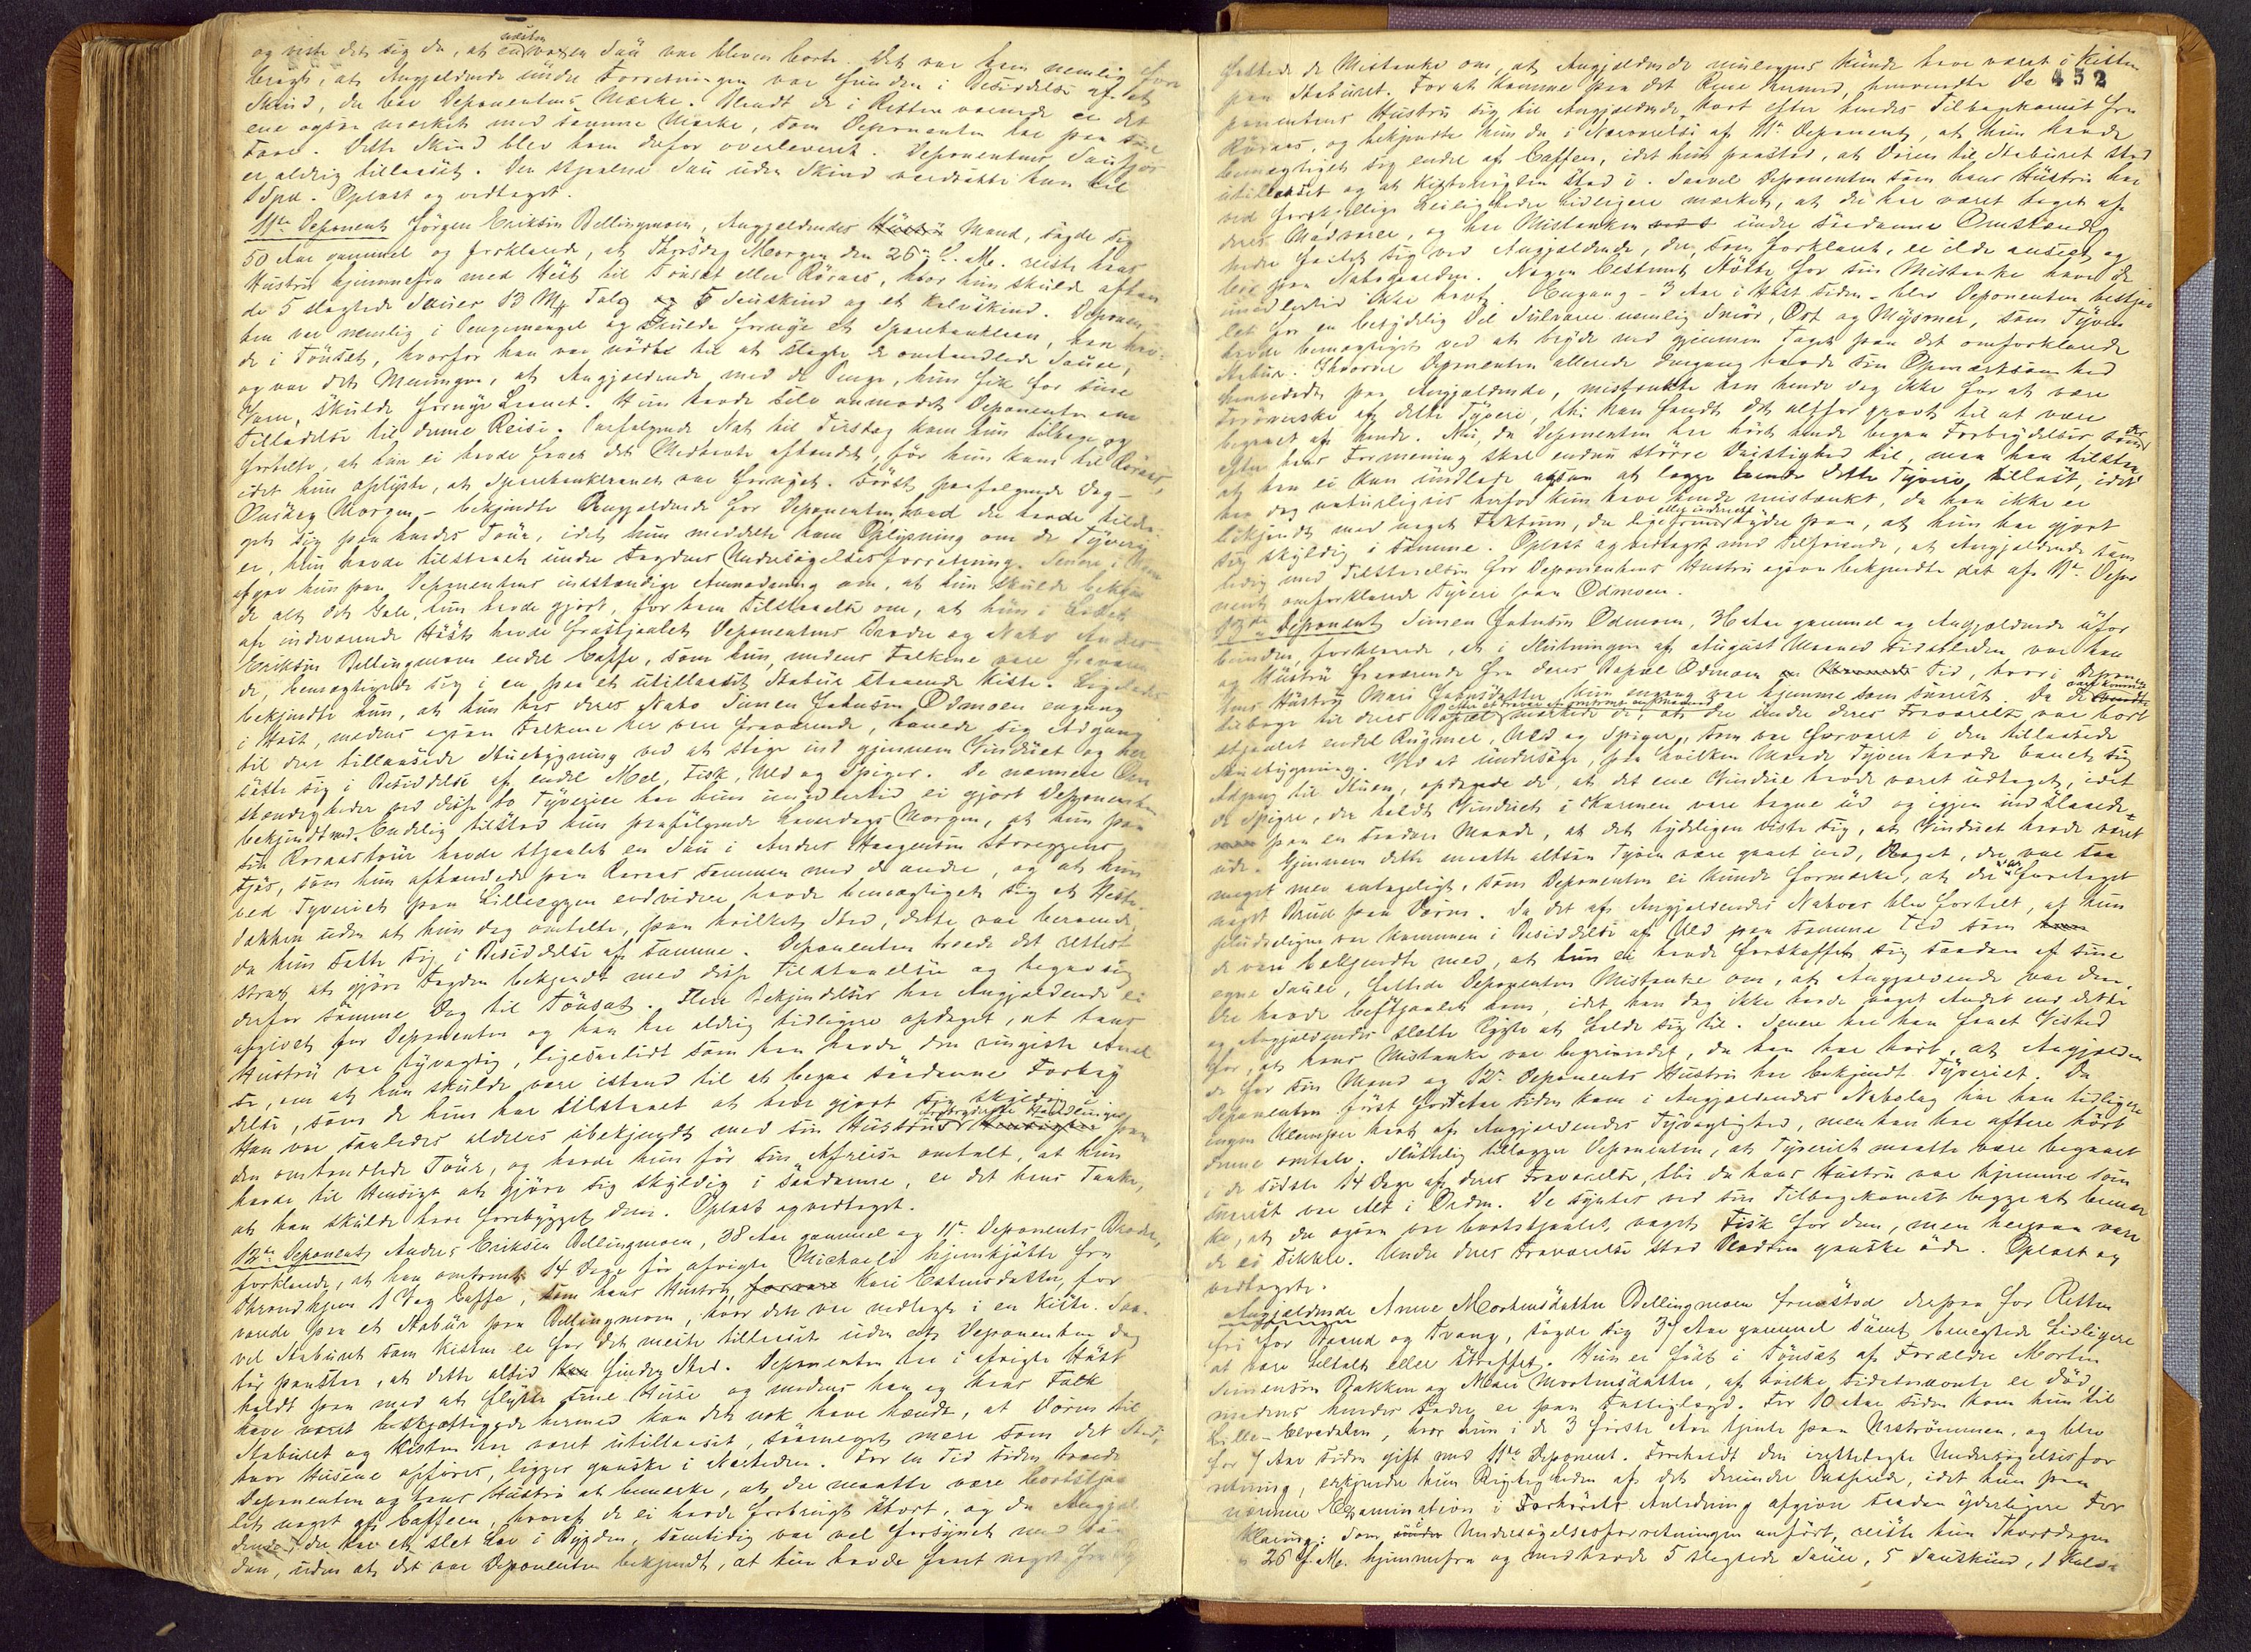 og viste det sig da, at en næsten voxen Sau var bleven borte. Det var ham nemlig fore
bragt, at Angjældende under Forretningen var funden i Besiddelse af et
Skind, der bar Deponentens Mærke. Blandt de i Retten værende er det
ene ogsaa mærket med samme Mærke, som Deponenten har paa sine
Faar. Dette Skind blev ham derfor overleveret. Deponentens Saufjøs
er aldrig tillaaset. Den stjaalne Sau uden Skind værdsatte han til
1 Spd. Oplæst og vedtaget.
11te Deponent Jörgen Eriksen Bellingmoen, Angjældendes Mand, sagde sig
50 Aar gammel og forklarede, at Thorsdag Morgen den 26de f. M. reiste hans
Hustru hjemmefra med Hest til Tönset eller Röraas, hvor hun skulde afhæn
de 5 slagtede Sauer 13 Mk Talg og 5 Sauskind og et Kalvskind. Deponen-
ten var nemlig i Pengemangel og skulde fornye et Sparebanklaan, han hav-
de i Tönset, hvorfor han var nödt til at slagte de omhandlede Sauer,
og var det Meningen, at Angjældende med de Penge, hun fik for sine
Varer, skulde fornye Laanet. Hun havde selv anmodet Deponenten om
Tilladelse til denne Reise. Paafølgende Nat til Tirsdag kom hun tilbage og
fortalte, at hun ei havde faaet det Medhavte afhændet, för hun kom til Röraas,
idet hun oplyste, at Sparebanklaanet var fornyet. Först paafølgende Dag -
Onsdag Morgen - bekjendte Angjældende for Deponenten, hvad der havde tildra-
get sig paa hendes Tour, idet hun meddelte ham Oplysning om de Tyverier
er, hun havde tilstaaet under Lensmandens Undersøgelsesforretning. Senere
afgav hun paa Deponentens indstændige Anmodning om, at hun skulde bekjen
de alt det Gale, hun havde gjort, for ham Tilstaaelse om, at hun i Löbet
af indeværende Höst havde frastjaalet Deponentens Broder og Nabo Anders
Eriksen Bellingmoen endel Caffe, som hun, medens Folkene vare fraværen
de, bemægtigede sig i en paa et utillaaset Stabur staaende Kiste. Ligeledes
bekjendte hun, at hun hos deres Nabo Simen Johnsen Ödmoen engang
i Höst, medens ogsaa Folkene her vare fraværende, banede sig Adgang
til den tillaasede Stuebygning ved at stige ind gjennem Vinduet og her
satte sig i Besiddelse af endel Mel, Fisk, Uld og Spiger. De nærmere Om
stændigheder ved disse to Tyverier har hun imidlertid ei gjort Deponenten
bekjendt med. Endelig tilstod hun paafølgende Löverdags Morgen, at hun paa
sin Röraastour havde stjaalet en Sau i Anders Haagensen Storeggens
Fjös, som hun afhændede paa Röraas sammen med de andre, og at hun
ved Tyveriet paa Lilleeggen endvidere havde bemægtiget sig et Heste-
dækken uden at hun dog omtalte, paa hvilket Sted, dette var beroende,
da hun satte sig i Besiddelse af samme. Deponenten troede det rettest
strax at gjøre Lensmanden bekjendt med disse Tilstaaelser og begav sig
derfor samme Dag til Tönset. Flere Bekjendelser har Angjældende ei
afgivet for Deponenten og han har aldrig tidligere opdaget, at hans
Hustru var tyvagtig, ligesaalidt som han havde den ringeste Anel
se, om at hun skulde være istand til at begaa saadanne Forbry
delser, som de hun har tilstaaet at have gjort sig skyldig i.
Han var saaledes aldeles ubekjendt med sin Hustrues forbryderske Handlinger paa
den omhandlede Tour, og havde hun för sin Afreise omtalt, at hun
havde til Hensigt at gjøre sig skyldig i saadanne, er det hans Tanke,
at han skulde have forebygget dem. Oplæst og vedtaget.
12te Deponent, Anders Eriksen Bellingmoen, 38 Aar gammel og 11te Deponents Broder,
forklarede, at han omtrent 14 Dage för afvigte Michaeli hjemkjøbte fra
Throndhjem 1 Vog Caffe, som hans Hustru, Kari Estensdatter, for
varede paa et Stabur paa Bellingmoen, hvor den var nedlagt i en Kiste. Saa-
vel Staburet som Kisten er for det meste tillaaset uden at Deponenten dog
tör paastaa, at dette altid finder Sted. Deponenten har i afvigte Höst
holdt paa med at flytte sine Huse og medens han og hans Folk
have været beskjæftigede hermed kan det nok have hændt, at Dören til
Staburet og Kisten har været utillaaset, saameget mere som det Sted,
hvor Husene opføres, ligger ganske i Nærheden. For en Tid siden troede
Deponenten og hans Hustru at bemærke, at der maatte være bortstjaa
let noget af Caffeen, hvoraf de ei havde forbrugt stort, og da Angjæl
dende, der har et slet Lov i Bygden, samtidig var vel forsynet med saa
dan, uden at det var Deponenten bekjendt, at hun havde faaet noget fra By
452
fattede de Mistanke om, at Angjældende muligens kunde have været i Kisten
paa Staburet. For at komme paa det Rene hermed, henvendte De
ponentens Hustru sig til Angjældende kort efter hendes Tilbagekomst fra
Röraas, og bekjendte hun da i Nærværelse af 11te Deponent, at hun havde
bemægtiget sig endel af Caffeen, idet hun paastod, at Dören til Staburet stod
utillaaset og at Kistenöglen stod i. Saavel Deponenten som hans Hustru har
ved forskjellige Leiligheder tidligere mærket, at der har været taget af
deres Madvarer, og har Mistanken under saadanne Omstændig
heder fæstet sig ved Angjældende, der, som forklaret, er ilde anseet og
bor paa Nabogaarden. Nogen bestemt Støtte for sin Mistanke have de
imidlertid ikke havt. Engang - 3 Aar i Höst siden - blev Deponenten bestjaa
let for en betydelig Del Sulvarer nemlig Smör, Ost og Mysmör, som Tyven
havde bemægtiget ved at bryde ned gjennem Taget paa det omforklarede
Stabur. Skjöndt Deponenten allerede dengang havde sin Opmærksomhed
henvendt paa Angjældende, mistænkte han hende dog ikke for at være
Udöverske af dette Tyveri, thi han fandt det altfor grovt til at være
begaaet af hende. Nu, da Deponenten har hört hende begaa Forbrydelser som der
efter hans Formening skal endnu större Dristighed til, maa han tilstaa,
at han ei kan undlade ogsaa at lægge hende dette Tyveri tillast, idet
han dog naturligvis herfor kun have hende mistænkt, da han ikke er
bekjendt med noget Faktum, der ligefrem eller indirecte tyder paa, at hun har gjort
sig skyldig i samme. Oplæst og vedtaget med Tilföiende, at Angjældende sam
tidig med Tilstaaelsen for Deponentens Hustru ogsaa bekjendte det af 11te Depo
nent omforklarede Tyveri paa Ödmoen.
13de Deponent Simen Johnsen Ödmoen, 34 Aar gammel og Angjældende ufor
bunden, forklarede, at i Slutningen af August Maaned sidstleden var han
og Hustru fraværende fra deres Bopæl Ödmoen en Tid, hvori Deponen
tens Hustru Mari Johnsdatter kun engang var hjemme som snarest. Da de vare komne
tilbage til deres Bopæl efter et Fravær af omtrent en Maaned mærkede de, at der under deres Fraværelse var bort
stjaalet endel Rugmel, Uld og Spiger, som var forvaret i den tillaasede
Stuebygning. Ved at undersøge, paa hvilken Maade Tyven havde banet sig
Adgang til Stuen, opdagede de, at det ene Vindue havde været udtaget, idet
de Spigre, der holdt Vinduet i Karmen vare tagne ud og igjen indslaaede
paa en saadan Maade, at det tydeligen viste sig, at Vinduet havde været
ude. Gjennem dette maatte altsaa Tyven være gaaet ind, Noget, der var saa
meget mer antageligt, som Deponenten ei kunde formærke, at der var foretaget
noget Brud paa Dören. Da det af Angjældendes Naboer blev fortalt, at hun
pludseligen var kommen i Besiddelse af Uld paa samme Tid som
de vare bekjendte med, at hun ei havde forskaffet sig saadan af sine
egne Sauer, fattede Deponenten Mistanke om, at Angjældende var den,
der havde bestjaalet ham, idet han dog ikke havde noget Andet end dette
og Angjældendes slette Rygte at holde sig til. Senere har han faaet Vished
for, at hans Mistanke var begrundet, da han har hört, at Angjælden
de for sin Mand og 12te Deponents Hustru har bekjendt Tyveriet. Da
Deponenten först for Aar siden kom i Angjældendes Nabolag har han tidligere
ingen Ulemper havt af Angjældendes Tyvagtighed, men han har oftere hört
denne omtale. Sluttelig tillægger Deponenten, at Tyveriet maatte være begaaet
i de sidste 14 Dage af deres Fraværelse, thi da hans Hustru var hjemme som
snarest var Alt i Orden. De syntes ved sin Tilbagekomst begge at bemær
ke, at der ogsaa var bortstjaalet noget Fisk for dem, men herpaa vare
de ei sikkre. Under deres Fraværelse stod Pladsen ganske øde. Oplæst og
vedtaget.
Angjældende Anne Mortensdatter Bellingmoen fremstod derpaa for Retten
fri for Baand og Tvang, sagde sig 37 Aar gammel samt benegtede tidligere
at være tiltalt eller straffet. Hun er född i Tönset af Forældre Morten
Simensen Bakken og Mari Mortensdatter, af hvilke sidstnævnte er död
medens hendes Fader er paa Fattiglægd. For 10 Aar siden kom hun til
Lille-Elvedalen, hvor hun i de 3 förste Aar tjente paa Urströmmen, og blev
for 7 Aar siden gift med 11te Deponent. Foreholdt den irettelagte Undersøgelsesfor
retning, erkjendte hun Rigtigheden af det derunder Passerede, idet hun paa
nærmere Examination i Forhörets Anledning afgiver saadan yderligere For
klaring: Som i Undersøgelsesforretningen anfört, reiste hun Thorsdagen
26 f. M. hjemmefra og medhavde 5 slagtede Sauer, 5 Sauskind, 1 Kalv-